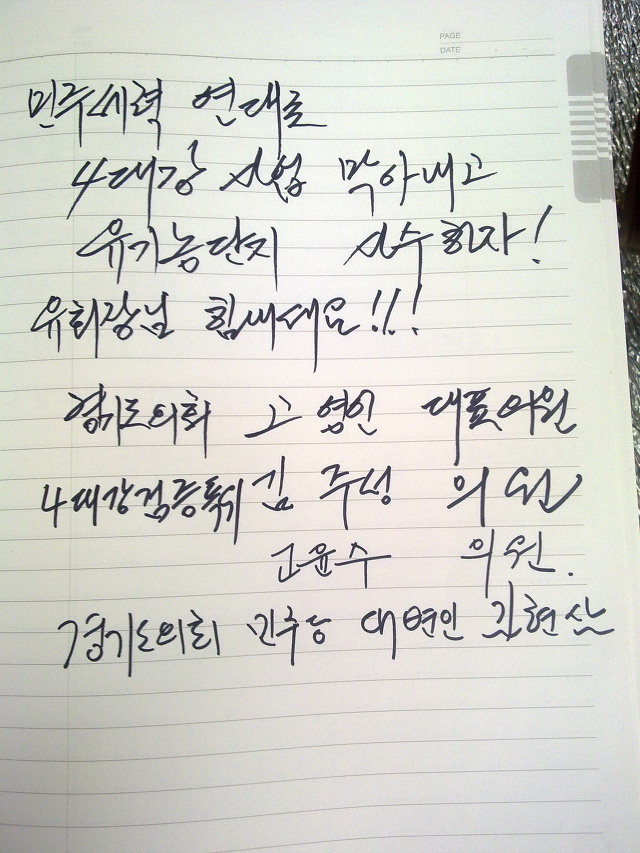 PAGE
DATE
민주세력 연대로
4대강 사업 막아내고
유기농단지 사수하자!
유회장님 힘내세요!!!
경기도의회 고영인 대표의원
4대강검증특위 김주성 의원
고윤수 의원.
경기도의회 민주당 대변인 김현삼